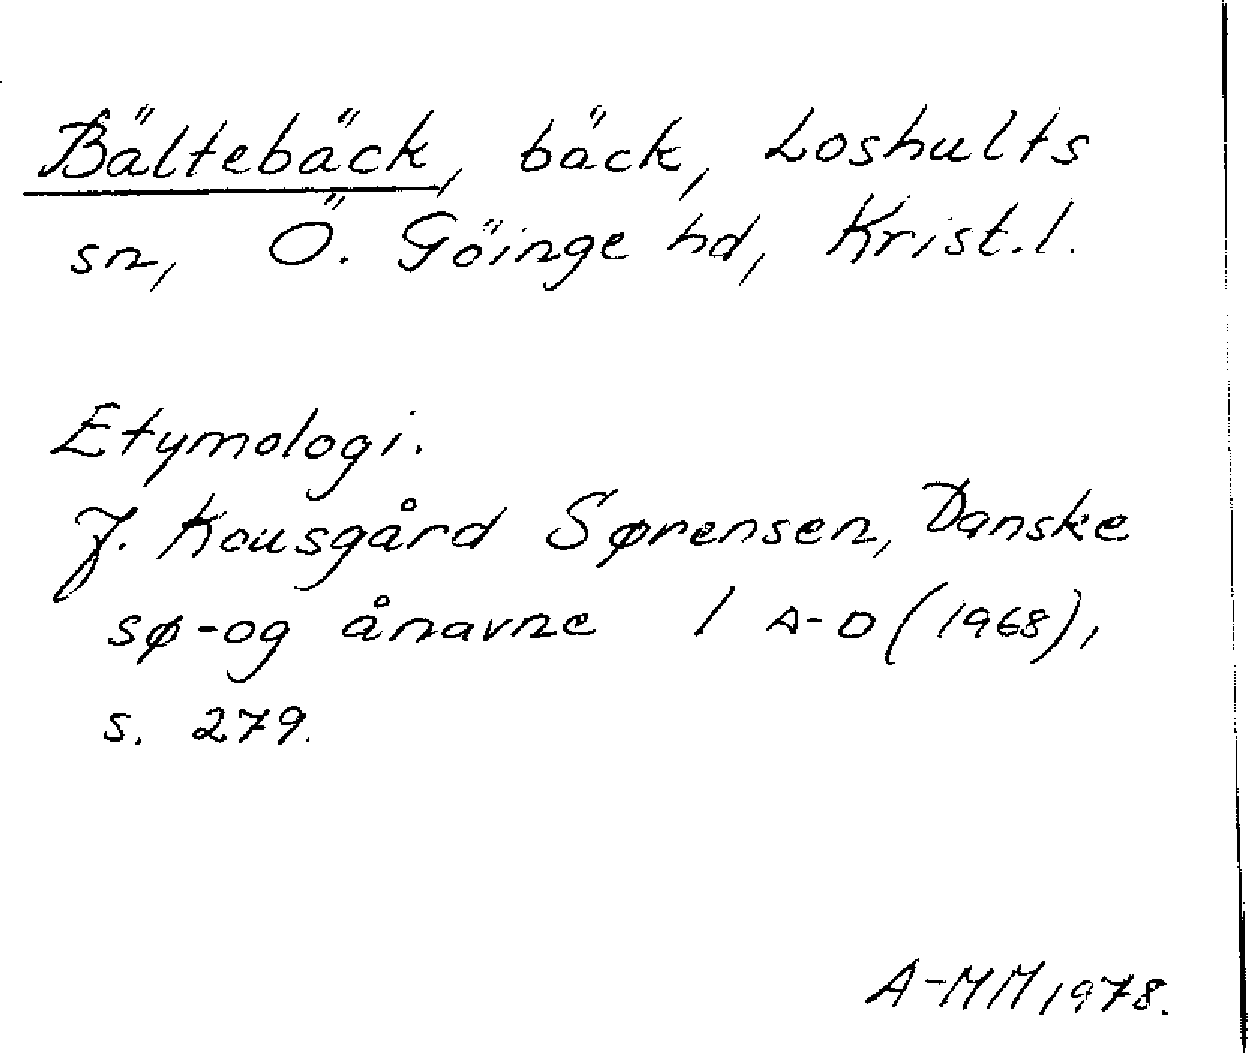 Bältebäck, bäck, Loshults
sn, Ö. Göinge hd, Krist.l.
Etymologi.
J. Kousgård Sørensen, Danske
sø-og ånavne 1 A-D (1968),
s. 279.
A-MM 1978.